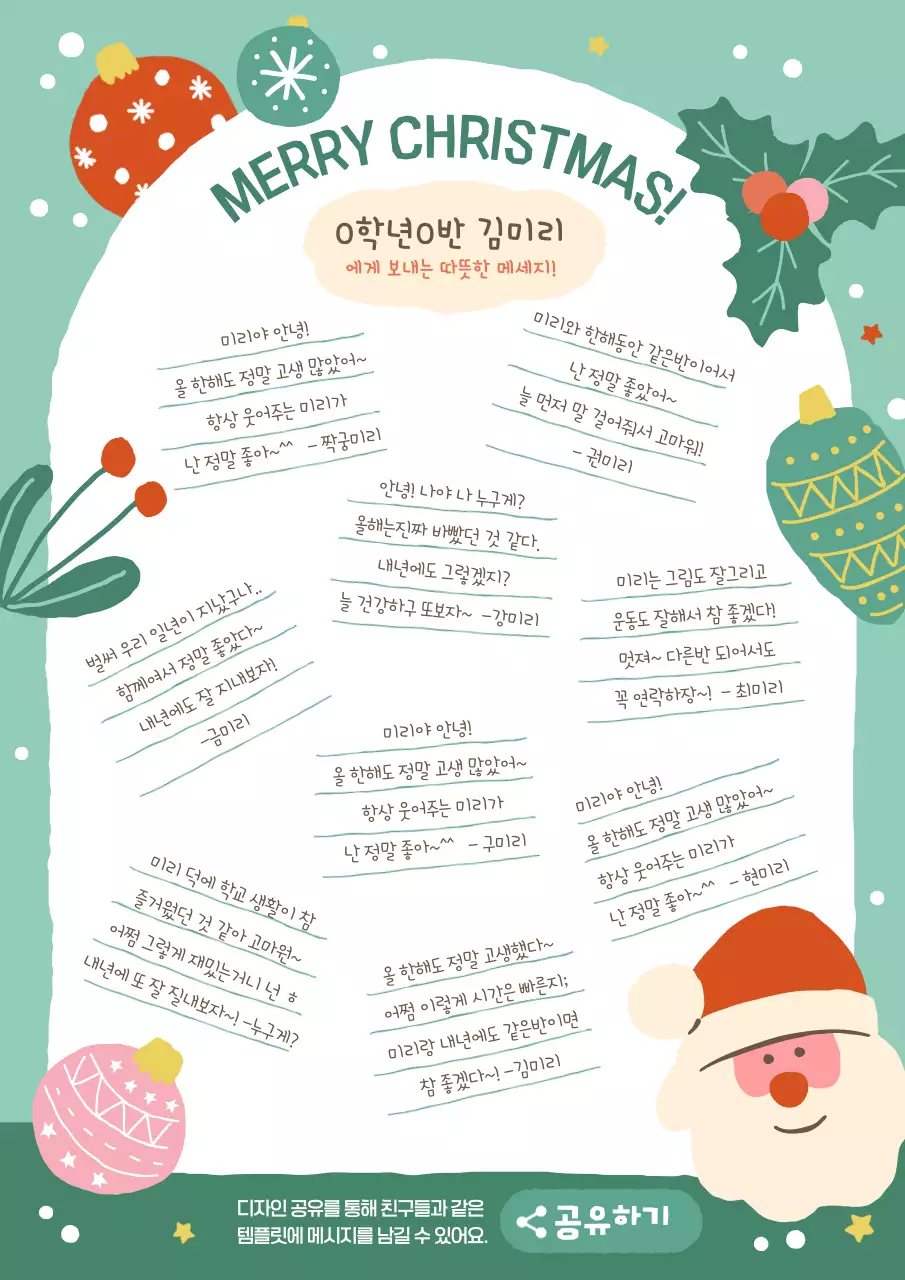 MERRY CHRISTMAS!
0학년0반 김미리
에게 보내는 따뜻한 메세지!
미리야 안녕!
올 한해도 정말 고생 많았어~
항상 웃어주는 미리가
난 정말 좋아~^^ - 짝궁미리
미리와 한해동안 같은반이어서
난 정말 좋았어~
늘 먼저 말 걸어줘서 고마워!
- 권미리
안녕! 나야 나 누구게?
올해는진짜 바빴던 것 같다.
내년에도 그렇겠지?
늘 건강하구 또보자~ -강미리
미리는 그림도 잘그리고
운동도 잘해서 참 좋겠다!
멋져~ 다른반 되어서도
꼭 연락하장~! - 최미리
벌써 우리 일년이 지났구나..
함께여서 정말 좋았다~
내년에도 잘 지내보자!
-금미리
미리야 안녕!
올 한해도 정말 고생 많았어~
항상 웃어주는 미리가
난 정말 좋아~^^ - 구미리
미리야 안녕!
올 한해도 정말 고생 많았어~
항상 웃어주는 미리가
난 정말 좋아~^^ - 현미리
미리 덕에 학교 생활이 참
즐거웠던 것 같아 고마원~
어쩜 그렇게 재밌는거니 넌 ㅎ
내년에 또 잘 질내보자~! -누구게?
올 한해도 정말 고생했다~
어쩜 이렇게 시간은 빠른지;
미리랑 내년에도 같은반이면
참 좋겠다~! -김미리
디자인 공유를 통해 친구들과 같은
템플릿에 메시지를 남길 수 있어요.
공유하기